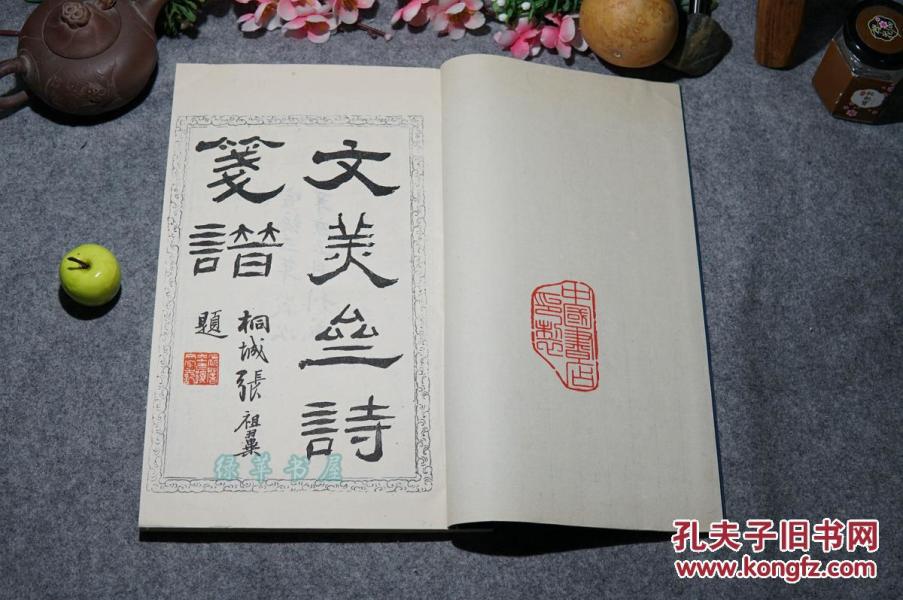 文美亝詩
箋譜
桐城張祖翼
題
中國書店
印製
书屋
孔夫子旧书网
www.kongfz.com